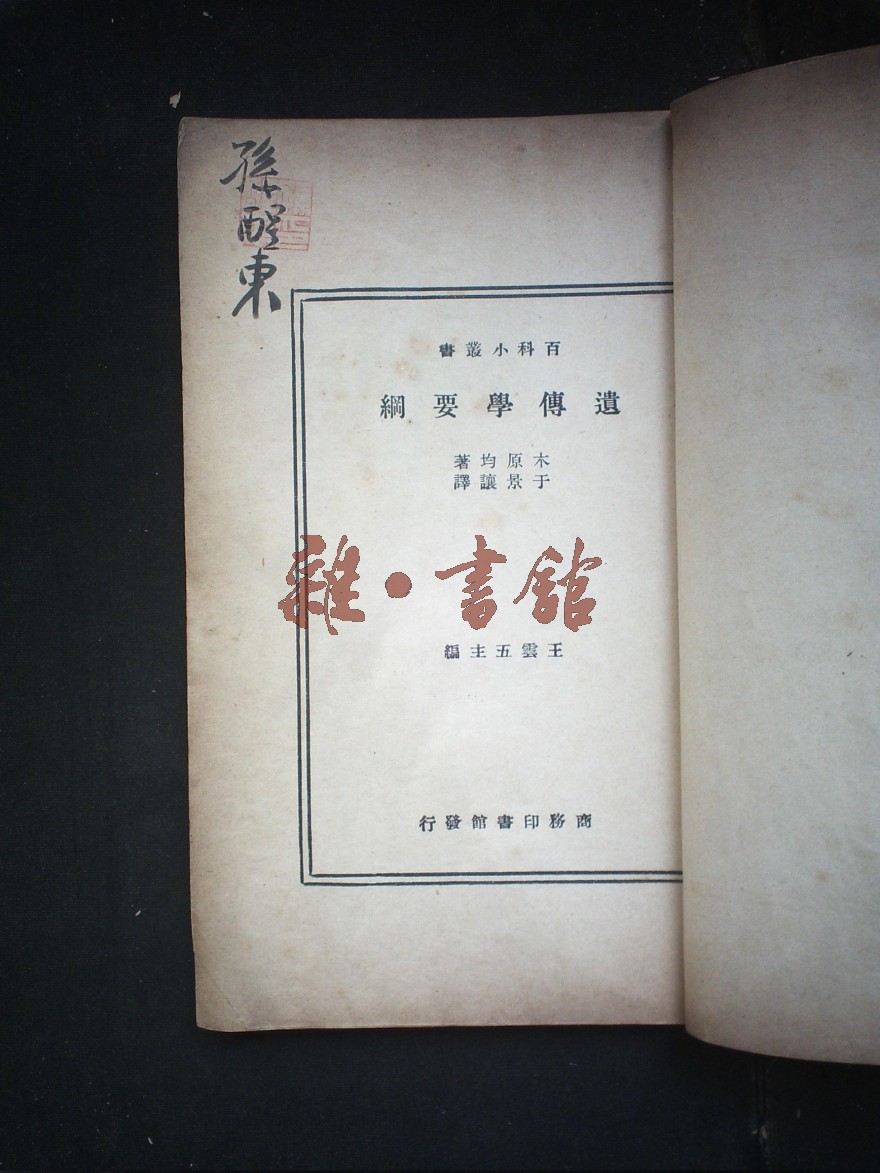 孫醒東
百科小叢書
遺傳學要綱
木原均著
于景讓譯
雜·書館
王雲五主編
商務印書館發行